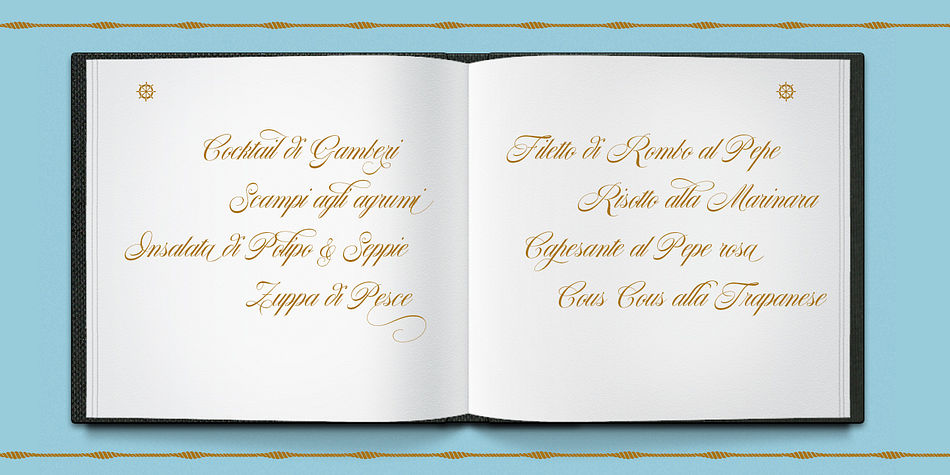 Cocktail di Gamberi
Scampi agli agrumi
Insalata di Polipo & Seppie
Zuppa di Pesce
Filetto di Rombo al Pepe
Risotto alla Marinara
Capesante al Pepe rosa
Cous Cous alla Trapanese